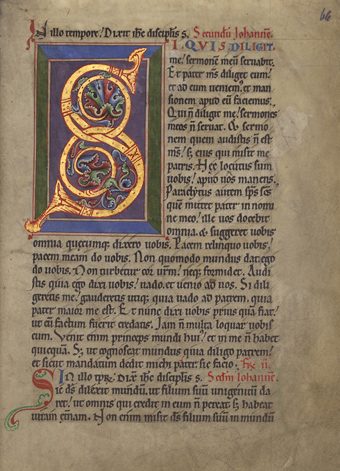 66
In illo tempore. Dixit ihc discipulis s. Secundum Iohannem.
SIQUIS DILIGIT
me. sermonem meum servabit.
Et pater ms diliget eum.
et ad eum veniem. et man
sionem apud eum faciemus.
Qui n diligit me. sermones
meos n servat. Et sermo
nem quem audistis n est
ms. s. eius qui misit me
patris. Hec locutus sum
vobis. apud vos manens.
Paraclytus autem sps scs
que mittet pater in nomi
ne meo. ille vos docebit
omnia. & suggeret vobis
omnia quecumq; dixero vobis. Pacem relinquo vobis.
pacem meam do vobis. Non quomodo mundus dat. ego
do vobis. Non turbetur cor vrm. neq; formidet. Audi
stis quia ego dixi vobis. vado. et venio ad vos. Si dili
geretis me. gauderetis utiq; quia vado ad patrem. quia
pater maior me est. Et nunc dixi vobis prius qua fiat.
ut cu factum fuerit credatis. Iam n multa loquar vobis
cum. Venit enim princeps mundi hui. et in me n habet
quicqua. S; ut cognoscat mundus quia diligo patrem.
et sicut mandatum dedit michi pater sic facio.
In illo tpr. Dix ihc discipulis s. Scdm Iohanne.
Sic ds dilexit mundu. ut filium suu unigenitu da
ret. ut omnis qui credit in eum n pereat. s; habeat
vitam eternam. Non enim misit ds filium suum in mundu